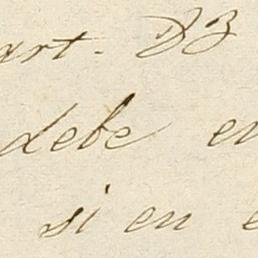 art. 23
debe en
si en e